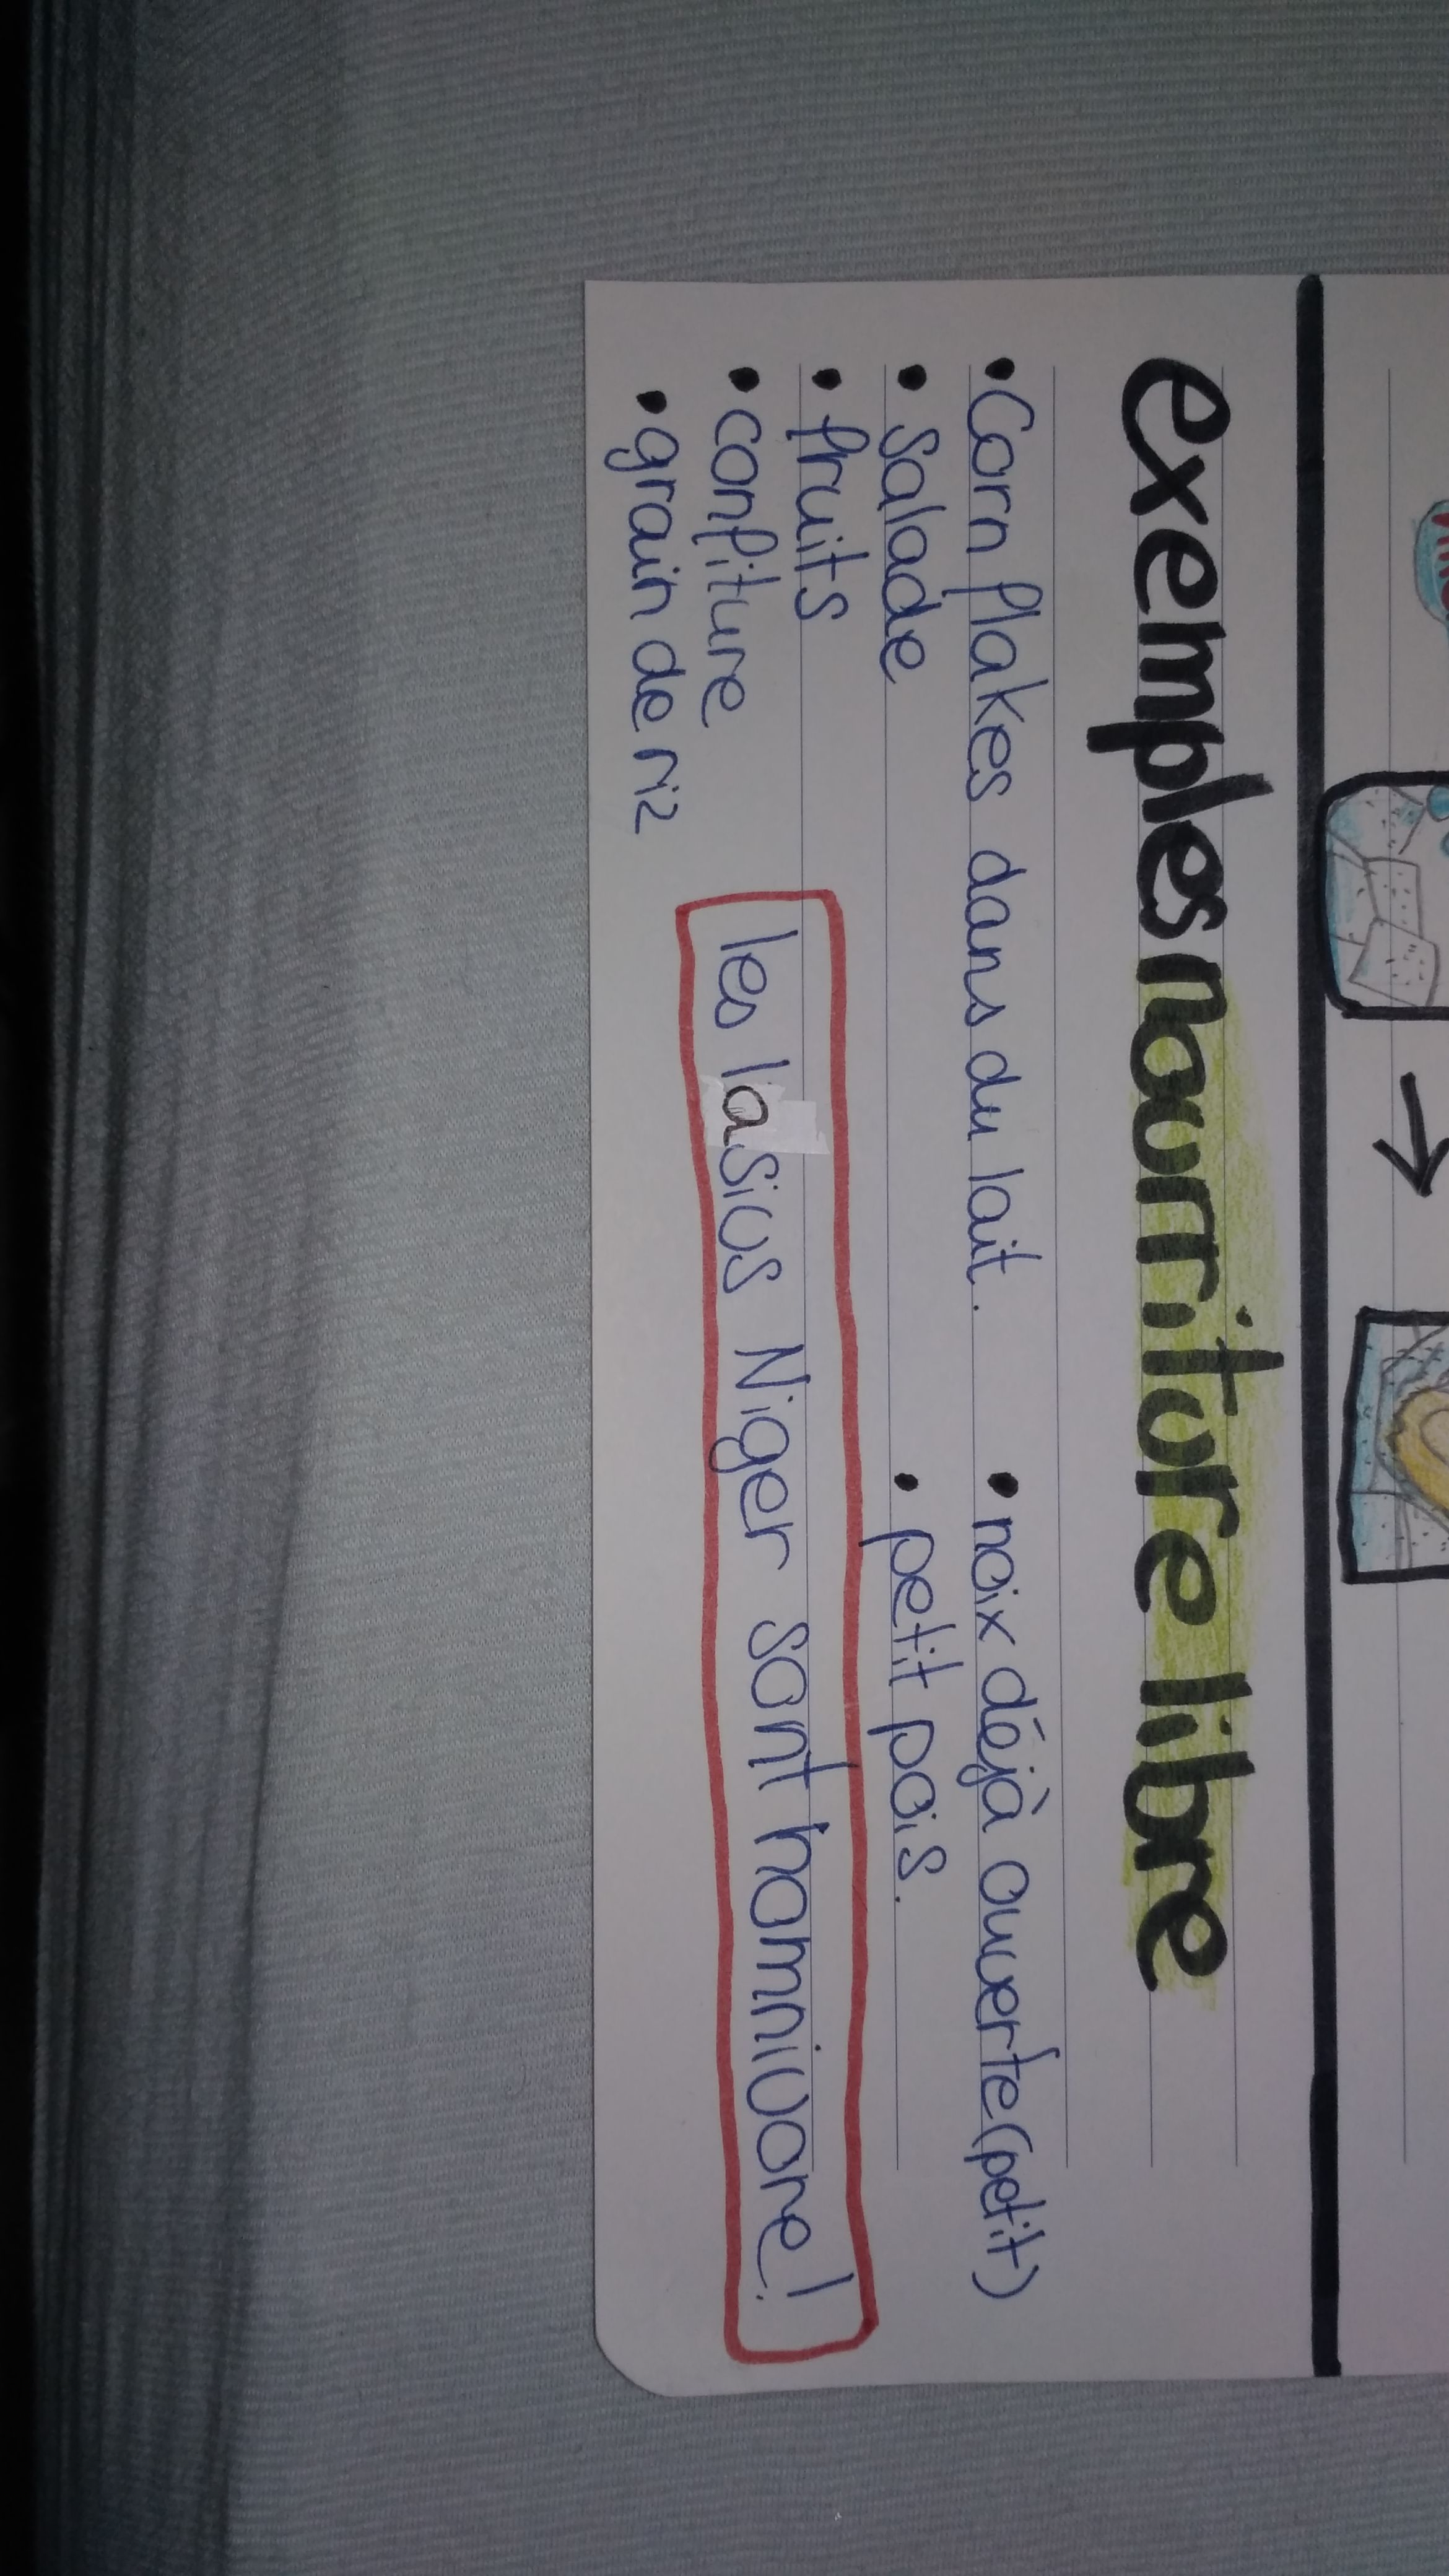 exemples nourriture libre
• Corn flakes dans du lait.
• noix déjà ouverte (petit)
• salade
• petit pois.
• fruits
• confiture
• grain de riz
les lasius Niger sont homnivore!